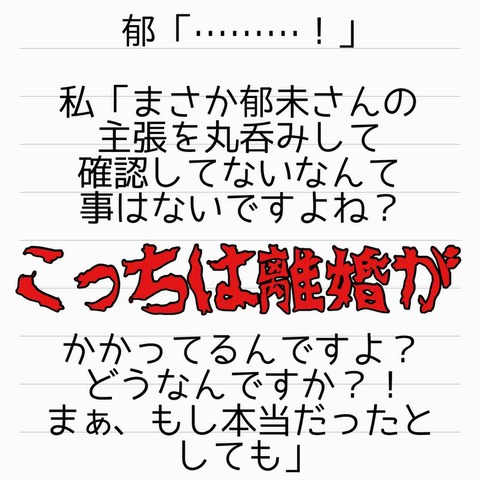 郁「………！」
私「まさか郁未さんの
主張を丸呑みして
確認してないなんて
事はないですよね？
こっちは離婚が
かかってるんですよ？
どうなんですか？！
まぁ、もし本当だったと
しても」